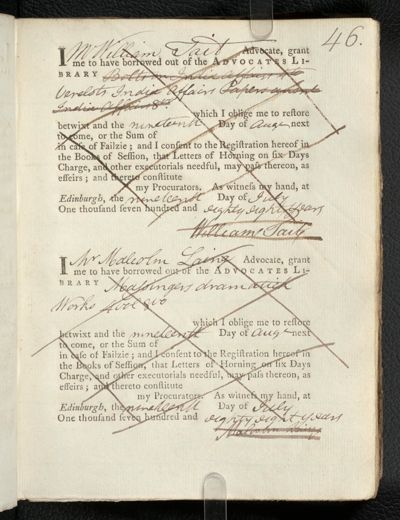 46.
I Mr William Tait Advocate, grant
me to have borrowed out of the ADVOCATES LI-
BRARY Bolts on India affairs
Verelsts India Affairs Papers
India Affairs
which I oblige me to reſtore
betwixt and the nineteenth Day of Augt next
to come, or the Sum of
in caſe of Failzie; and I conſent to the Regiſtration hereof in
the Books of Seſſion, that Letters of Horning on ſix Days
Charge, and other executorials needful, may paſs thereon, as
effeirs; and thereto conſtitute
my Procurators. As witneſs my hand, at
Edinburgh, the nineteenth Day of July
One thouſand ſeven hundred and eighty eight years
William Tait
I Mr Malcolm Laing Advocate, grant
me to have borrowed out of the ADVOCATES LI-
BRARY Massingers dramatick
Works 4 vol 8vo
which I oblige me to reſtore
betwixt and the nineteenth Day of Augt next
to come, or the Sum of
in caſe of Failzie; and I conſent to the Regiſtration hereof in
the Books of Seſſion, that Letters of Horning on ſix Days
Charge, and other executorials needful, may paſs thereon, as
effeirs; and thereto conſtitute
my Procurators. As witneſs my hand, at
Edinburgh, the nineteenth Day of July
One thouſand ſeven hundred and eighty eight years
Malcolm Laing